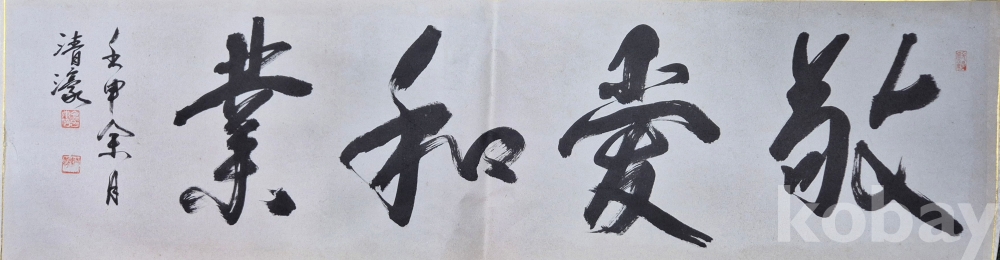 敬愛和業
壬申余月
清濠
kobay